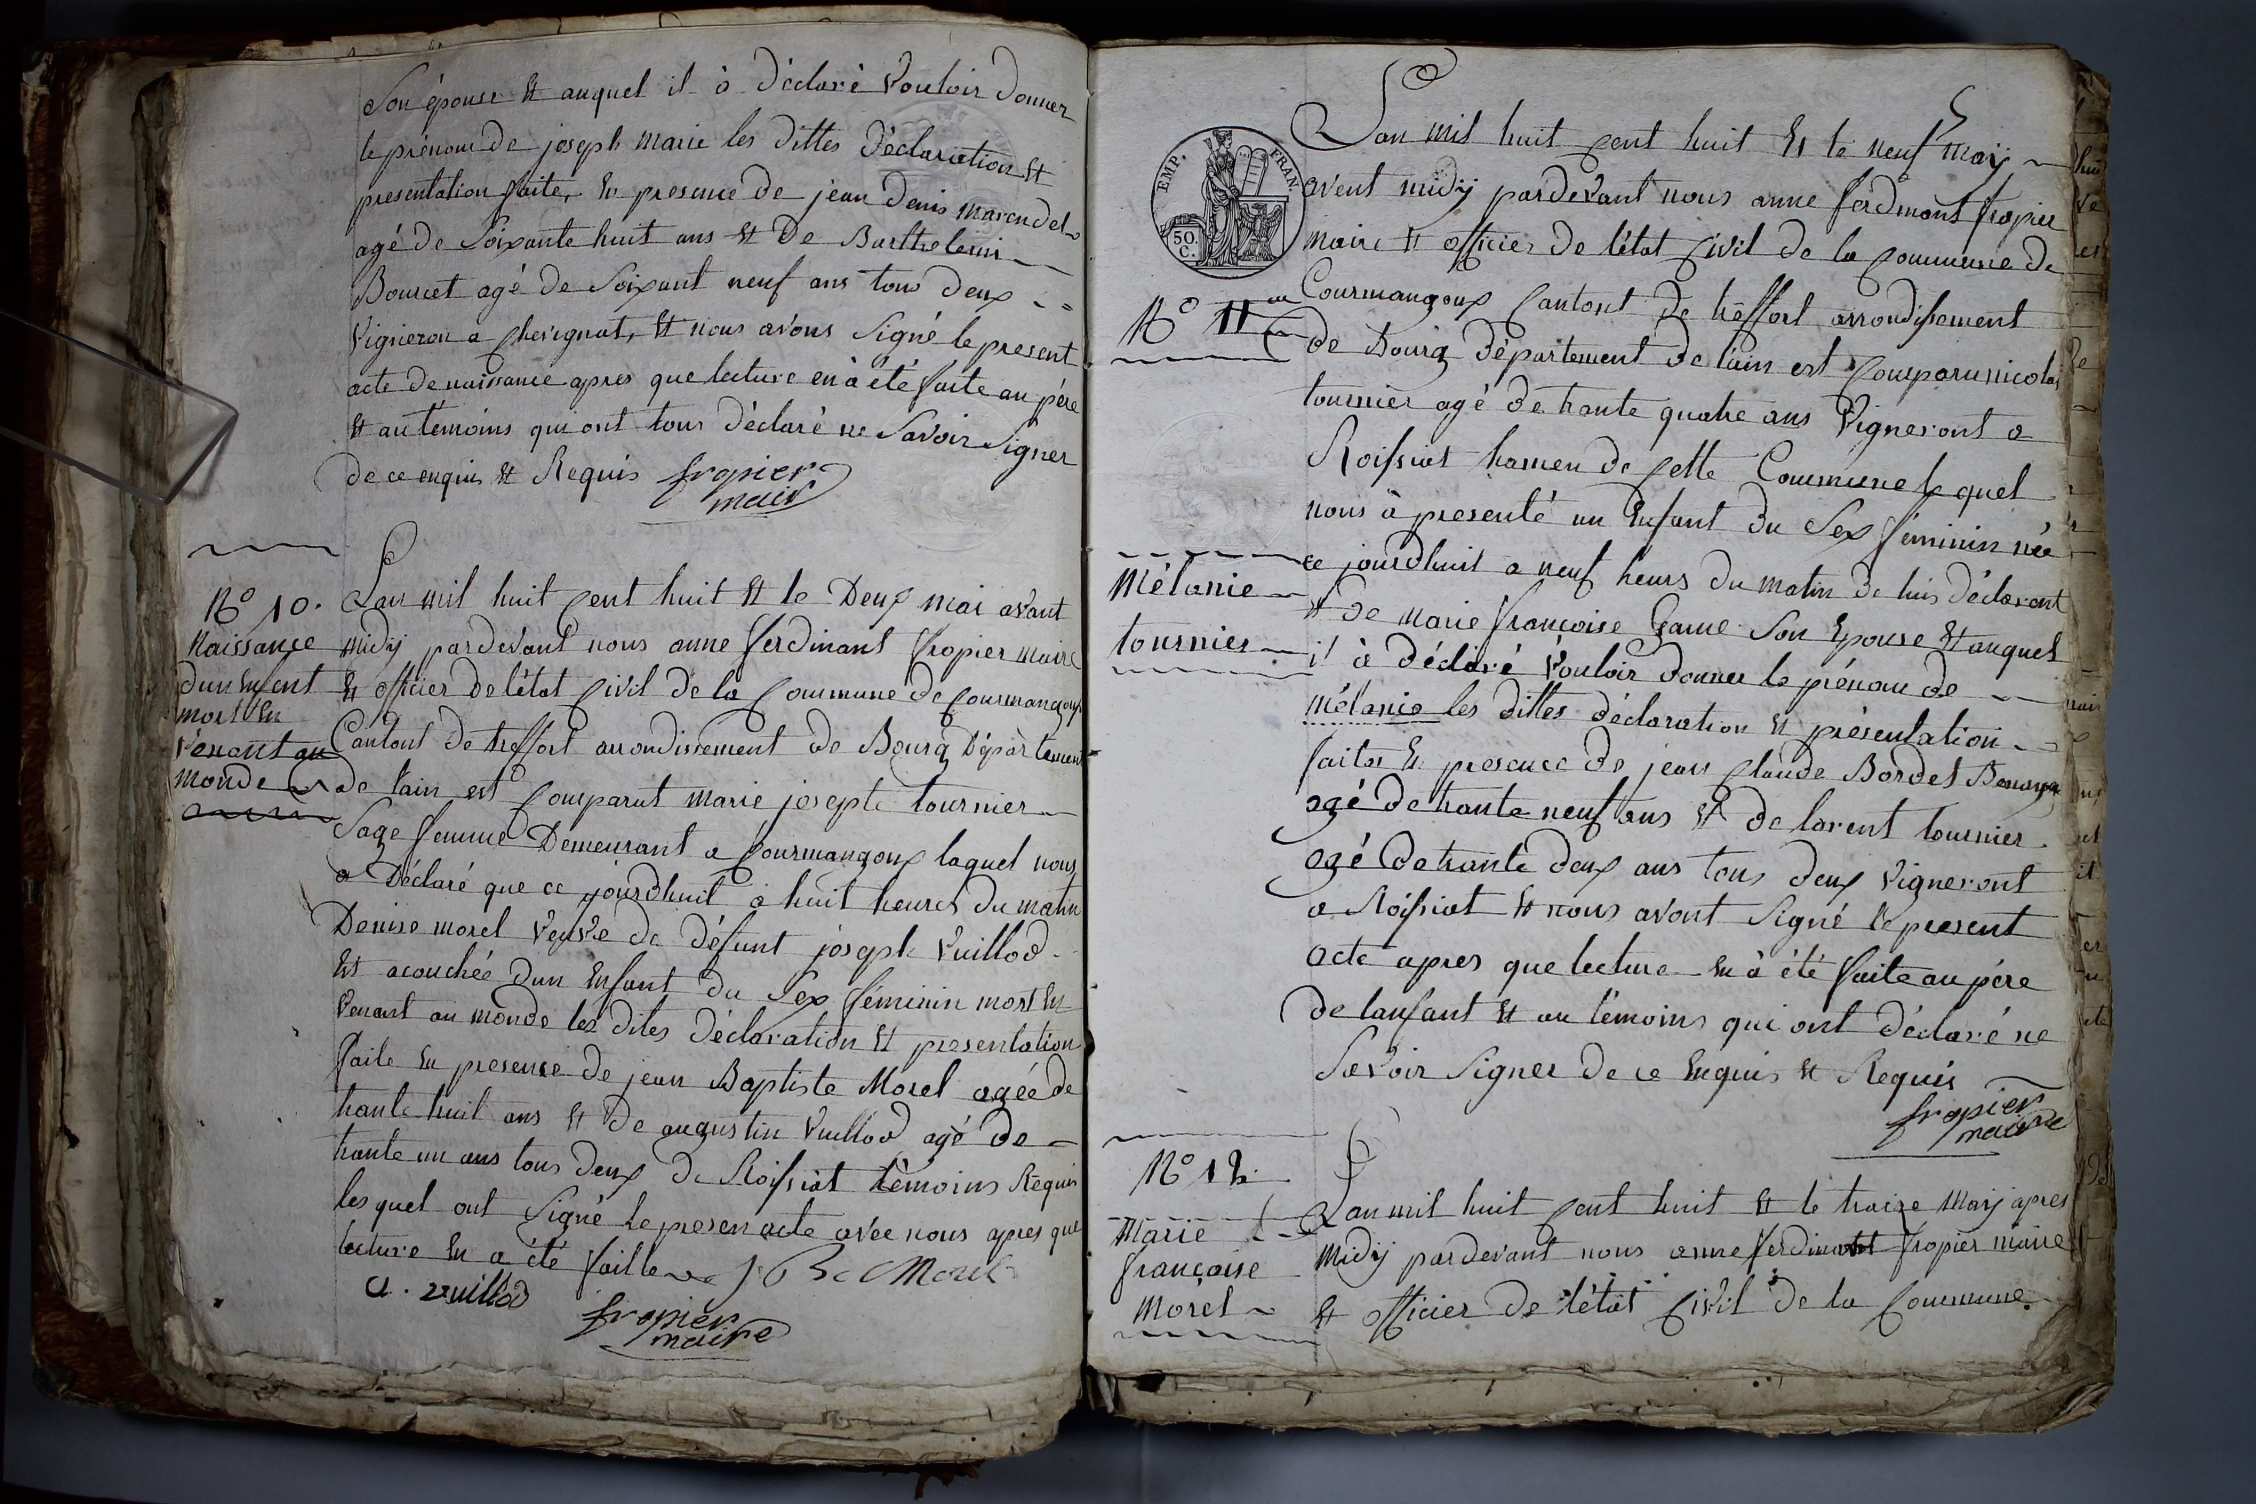 Son épouse et auquel il à déclaré vouloir donner
le prénom de joseph marie les dittes déclaration et
presentation faite, en presence de jean denis marendet
agé de soixante huit ans et de Barthelemi
Bourcet agé de soixant neuf ans tous deux
vignieron a chevignat, et nous avons signé le present
acte de naissance apres que lecture en à été faite au pére
et au témoins qui ont tous déclaré ne savoir signer
de ce enquis et Requis fropier
maire
N° 10.
Naissance
dun enfent
mort en
venont au
monde
Lan mil huit cent huit et le deux mai avant
midy pardevant nous anne ferdinant fropier maire
et officier de létat civil de la commune de courmangoux
Cantont de treffort arrondissement de Bourg département
de lain est comparut marie josepte tournier
Sage femme Demeurant a courmangoux laquel nous
a Déclaré que ce jourdhuit à huit heures du matin
Denise morel veuve de défunt joseph vuillod
est acouchée dun enfant du sex féminin mort en
venant au monde les dites déclaration et presentation
faite en presence de jean Baptiste Morel agée de
trante huit ans et de augustin vuillod agé de
trante un ans tous deux de Roissiat témoins Requis
les quel ont signé le presen acte avec nous apres que
lecture en a été faitte J B Morel
a. vuillod
fropier
maire
EMP. FRAN.
50. C.
N° 11
Mélanie
tournier
Lan mil huit cent huit et le neuf may
avent midy pardevant nous anne ferdinant fropier
maire et officier de létat civil de la commune de
Courmangoux cantont de treffort arrondissement
de Bourg département de lain est comparu nicolas
tournier agé de trante quatre ans vigneront a
Roissiat hameu de cette Commune le quel
nous à presenté un enfant du sex féminin née
ce jourdhuit a neuf heurs du matin de luis déclarant
et de marie françoise Game son epouse et auquel
il à déclaré vouloir donner le prénom de
mélanie les dittes déclaration et présentation
faites en presence de jean claude Bordet
agé de trante neuf ans et de larent tournier
agé de trante deux ans tous deux vigneront
a Roissiat et nous avont signé le present
acte apres que lecture en à été faite au pére
de lanfant et au témoins qui ont déclaré ne
savoir signer de ce enquis et Requis
fropier
maire
N° 12.
Marie
françoise
Morel
Lan mil huit cent huit et le traize may apres
midy pardevant nous anne ferdinant fropier maire
et officier de létat civil de la commune